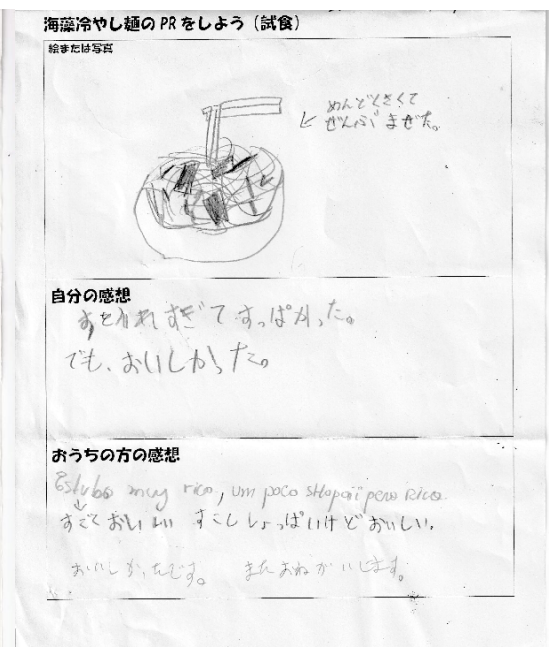 海藻冷やし麺のPRをしよう（試食）
絵または写真
めんどくさくて
ぜんぶまぜた。
自分の感想
すを入れすぎてすっぱかった。
でも、おいしかった。
おうちの方の感想
Estubo muy rico, um poco shopaii pero Rico.
すごておいしい すこししょっぱいけどおいしい。
おいしかったです。 またおねがいします。